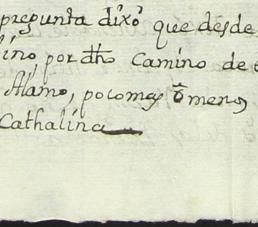 pregunta dixo que desde
lino, por dho Camino de
Alamo, poco mas o menos
Cathalina